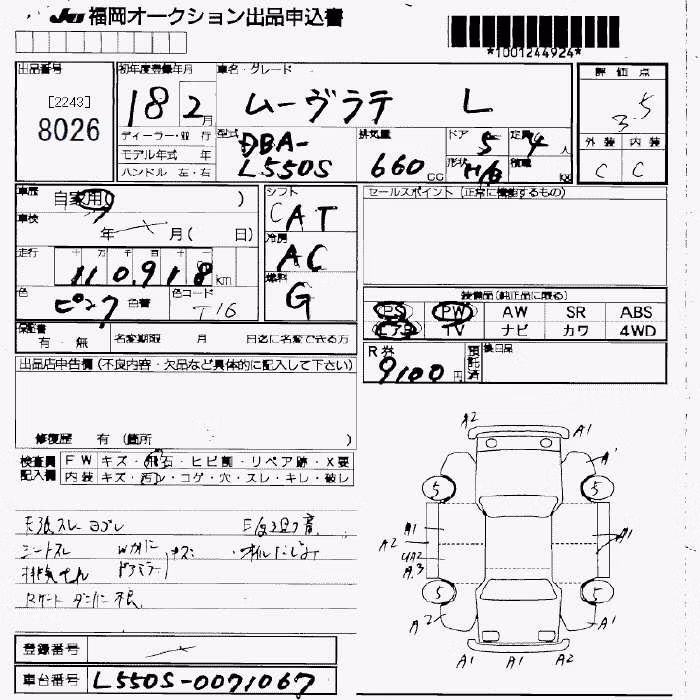 JU 福岡オークション出品申込書
*1001244924*
出品番号
[2243]
8026
初年度登録年月
18 2月
車名・グレード
ムーヴラテ L
評価点
3.5
外装 内装
C C
ディーラー・並行
モデル年式 年
ハンドル 左・右
型式
DBA-
L550S
排気量
660 CC
ドア
5
定員
4人
形状
H/B
積載
KG
車歴
自家用( )
車検
年 月( 日)
走行
十 万 千 百 十
110,918 km
色
ピンク 色替
色コード
T16
シフト
CAT
冷房
AC
燃料
G
セールスポイント (正常に機能するもの)
装備品(純正品に限る)
PS PW AW SR ABS
エアB TV ナビ カワ 4WD
保証書
有・無
名変期限 月 日迄に名変できる方
R券
9100円
預託済
後日品
出品店申告欄(不良内容・欠品など具体的に記入して下さい)
修復歴 有(箇所 )
検査員記入欄
FW キズ・飛石・ヒビ割・リペア跡・X要
内装 キズ・汚れ・コゲ・穴・スレ・キレ・破レ
天張スレ ヨゴレ
シートスレ
ドアミラー キズ
オイルにじみ
A2 A1
A1
5 5
A1 A1
A2
4A2
A3
5 5
A2 A1
A1 A1 A2
登録番号
車台番号 L550S-0071067